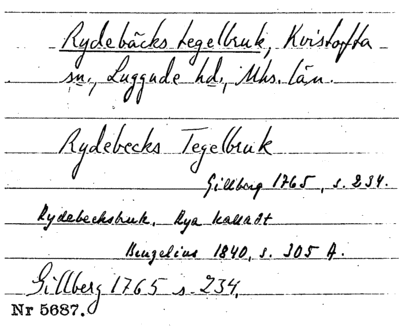 Rydebäcks tegelbruk, Kvistofta
sn., Luggude hd., Mhs. län.
Rydebecks Tegelbruk
Gillberg 1765, s. 234.
Rydebecksbruk, Rya kalladt
1840, s. 305 A.
Gillberg 1765 s. 234.
Nr 5687.